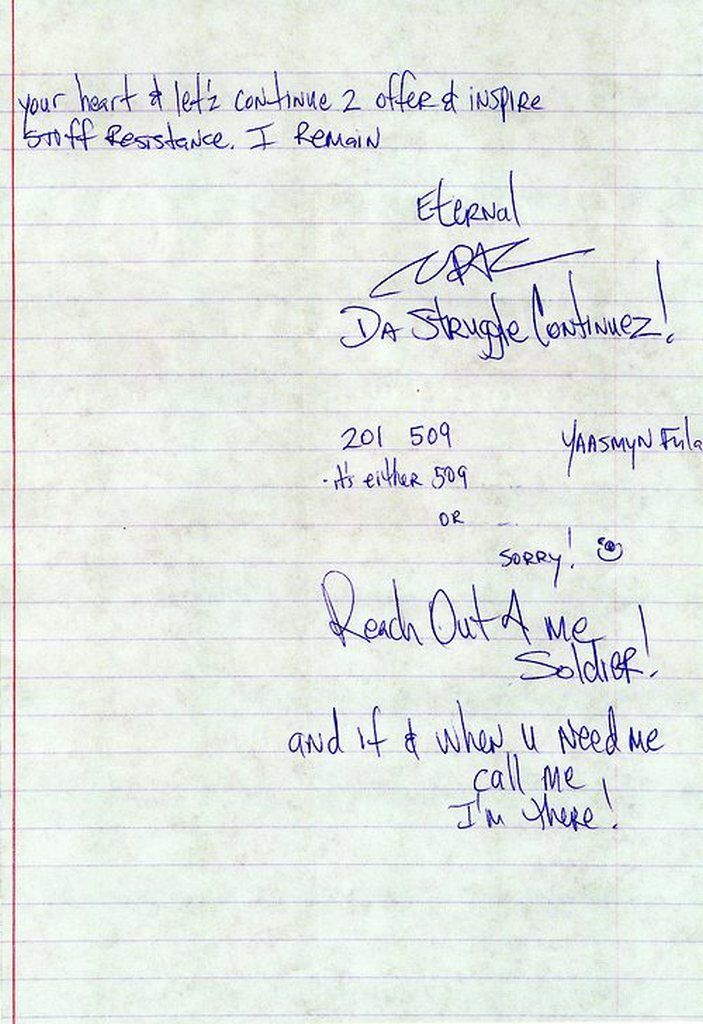 your heart & let'z continue 2 offer & inspire
Stiff Resistance. I Remain
Eternal
2PAC
Da Struggle Continuez!
201 509
Yaasmyn Fula
- it's either 509
OR
SORRY!
Reach Out 4 me
Soldier!
and if & when u need me
call me
I'm there!